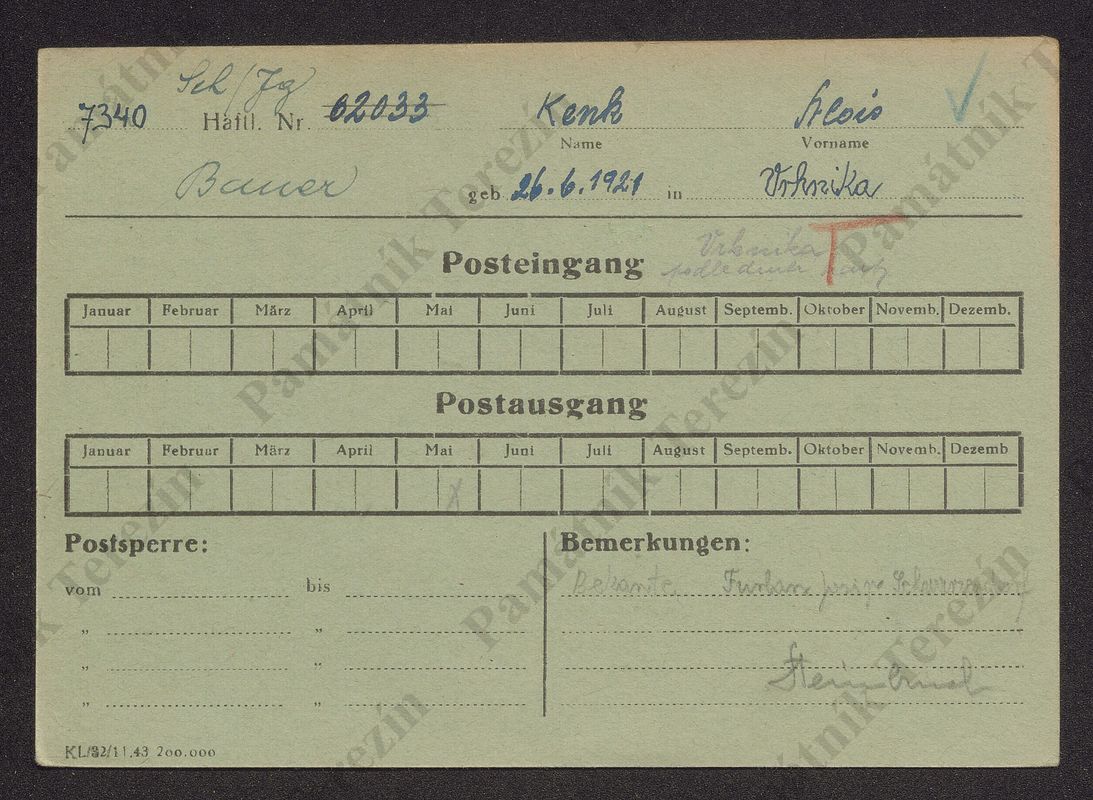 Sch/Jg
7340 Häftl. Nr. 62033 Kenk Alois
Name Vorname
Bauer geb 26.6.1921 in Vrhnika
Posteingang Vrhnika T
podle druh karty
Januar Februar März April Mai Juni Juli August Septemb. Oktober Novemb. Dezemb.
Postausgang
Januar Februar März April Mai Juni Juli August Septemb. Oktober Novemb. Dezemb
x
Postsperre: Bemerkungen:
vom bis Bekante Furlan
" "
" "
" "
KL/32/11.43 200.000
Památník Terezín